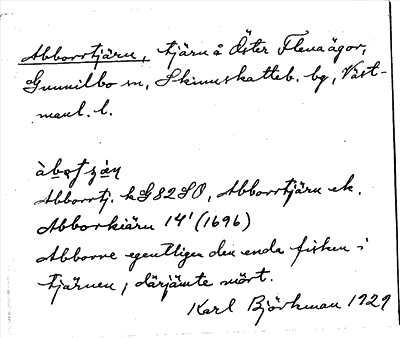 Abborrtjärn, tjärn å Öster Flenaägor,
Gunnilbo sn, Skinnskatteb. bg, Väst-
manl. l.
Abborrtj. kG82SO, Abborrtjärn ek.
Abborkiärn 14' (1696)
Abborre egentligen den enda fisken i
tjärnen, därjämte mört.
Karl Björkman 1929